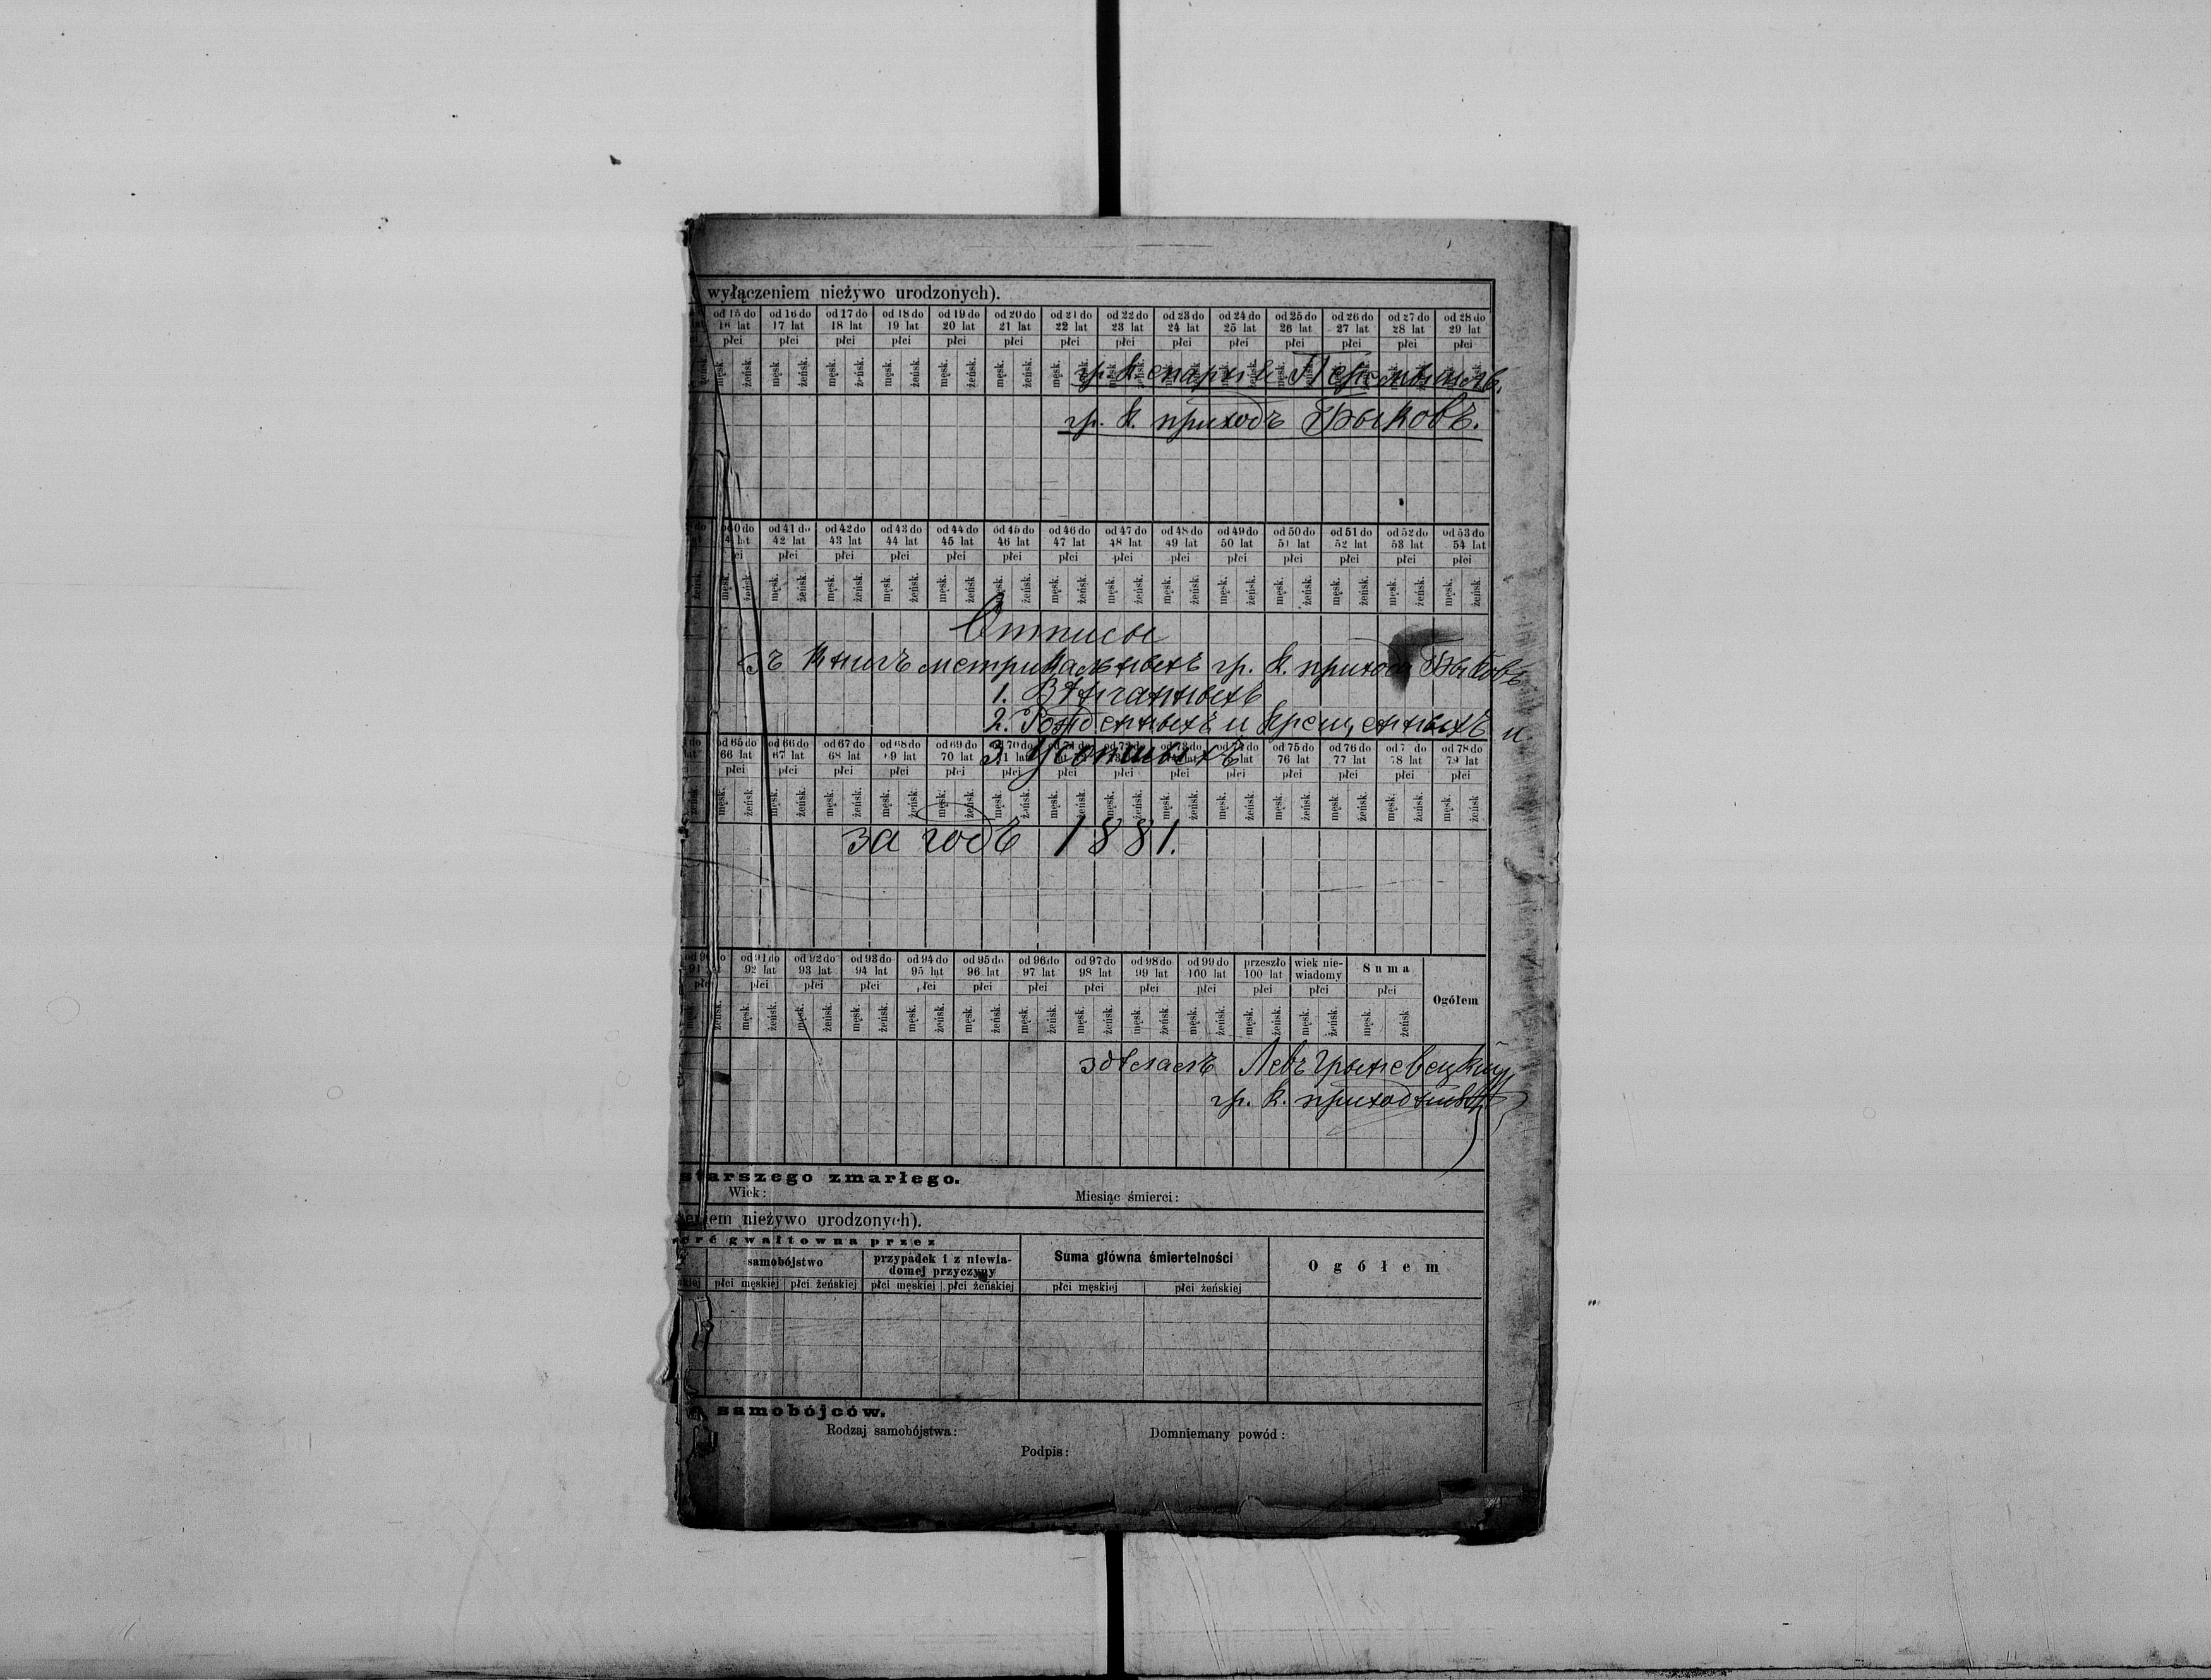 wyłączeniem nieżywo urodzonych).
od 15 do 16 lat od 16 do 17 lat od 17 do 18 lat od 18 do 19 lat od 19 do 20 lat od 20 do 21 lat od 21 do 22 lat od 22 do 23 lat od 23 do 24 lat od 24 do 25 lat od 25 do 26 lat od 26 do 27 lat od 27 do 28 lat od 28 do 29 lat
płci płci płci płci płci płci płci płci płci płci płci płci płci płci
żeńsk. męsk. żeńsk. męsk. żeńsk. męsk. żeńsk. męsk. żeńsk. męsk. żeńsk. męsk. żeńsk. męsk.
гр. к. епархія Перемышль.
гр. к. приходъ Быковъ.
od 41 do 42 lat od 42 do 43 lat od 43 do 44 lat od 44 do 45 lat od 45 do 46 lat od 46 do 47 lat od 47 do 48 lat od 48 do 49 lat od 49 do 50 lat od 50 do 51 lat od 51 do 52 lat od 52 do 53 lat od 53 do 54 lat
płci płci płci płci płci płci płci płci płci płci płci płci płci
żeńsk. męsk. żeńsk. męsk. żeńsk. męsk. żeńsk. męsk. żeńsk. męsk. żeńsk. męsk. żeńsk. męsk. żeńsk. męsk. żeńsk. męsk. żeńsk. męsk. żeńsk. męsk. żeńsk. męsk. żeńsk. męsk. żeńsk. męsk. żeńsk.
Отписы
зъ книгъ метрикальныхъ гр. к. прихода Быковъ
1. Вѣнчанныхъ
2. Рожденныхъ и крещенныхъ и
3. Усопшихъ
od 65 do 66 lat od 66 do 67 lat od 67 do 68 lat od 68 do 69 lat od 69 do 70 lat od 75 do 76 lat od 76 do 77 lat od 78 do 79 lat
płci płci płci płci płci płci płci płci płci płci płci płci płci płci
żeńsk. męsk. żeńsk. męsk. żeńsk. męsk. żeńsk. męsk. żeńsk. męsk. żeńsk. męsk. żeńsk. męsk. żeńsk. męsk. żeńsk. męsk. żeńsk. męsk. żeńsk. męsk. żeńsk. męsk. żeńsk. męsk. żeńsk. męsk. żeńsk
за годъ 1881.
od 91 do 92 lat od 92 do 93 lat od 93 do 94 lat od 94 do 95 lat od 95 do 96 lat od 96 do 97 lat od 97 do 98 lat od 98 do 99 lat od 99 do 100 lat przeszło 100 lat wiek niewiadomy Suma Ogółem
płci płci płci płci płci płci płci płci płci płci płci płci płci
męsk. żeńsk. męsk. żeńsk. męsk. żeńsk. męsk. żeńsk. męsk. żeńsk. męsk. żeńsk. męsk. żeńsk. męsk. żeńsk. męsk. żeńsk. męsk. żeńsk. męsk. żeńsk. męsk. żeńsk. męsk. żeńsk
здѣлалъ Левъ Грыневецкій
гр. к. приходникъ
starszego zmarłego.
Wiek: Miesiąc śmierci:
nieżywo urodzonych).
gwałtowna przez
samobójstwo przypadek i z niewiadomej przyczyny Suma główna śmiertelności Ogółem
płci męskiej płci żeńskiej płci męskiej płci żeńskiej płci męskiej płci żeńskiej
samobójców.
Rodzaj samobójstwa: Domniemany powód:
Podpis: